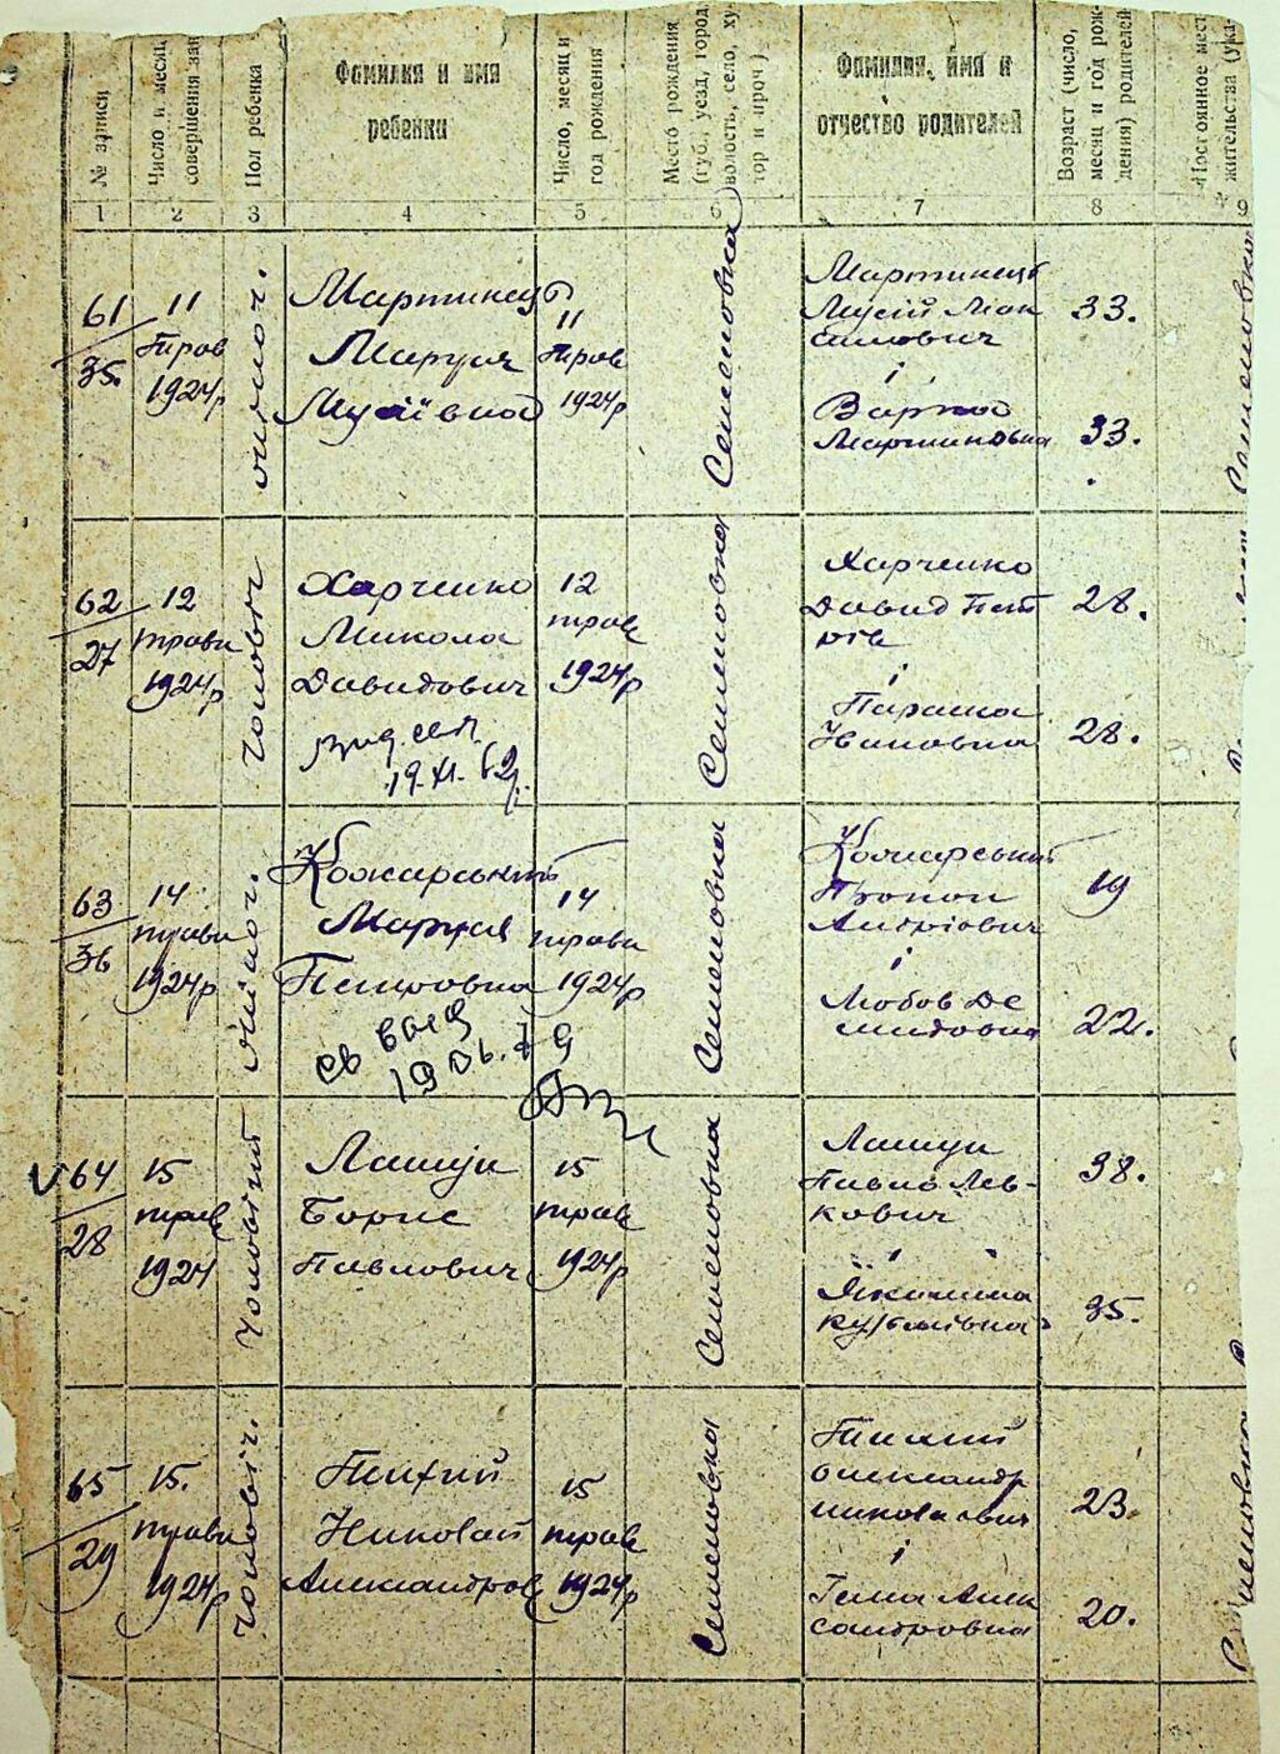 № записи
Число и месяц
совершения зап
Пол ребенка
Фамилия и имя
ребенка
Число, месяц и
год рождения
Место рождения
(губ., уезд, город,
волость, село, ху-
тор и проч)
Фамилия, имя и
отчество родителей
Возраст (число,
месяц и год рож-
дения) родителей
Постоянное мест
жительства (ука-
1 2 3 4 5 6 7 8 9
61
35.
11
трав
1924р
жіноч.
Мартинець
Маруся
Мусіївна
11
трав
1924р
Семеновка
Мартинець
Мусій Мак
симович
і
Варка
Мартиновна
33.
33.
Семеновка
62
27
12
трави
1924р
чоловіч
Харченко
Микола
Давидович
19.XI.62р.
12
трав
1924р
Семеновка
Харченко
Давид Пет
рів
і
Параска
Івановна
28.
28.
63
36
14
трави
1924р
жіноч.
Кожарський
Маруся
Петровна
св выд
19 06.79
14
трави
1924р
Семеновка
Кожарський
Андріович
і
Любов Де
мидовна
19
22.
V 64
28
15
трав
1924
чоловіч
Лашун
Борис
Павлович
15
трав
1924р
Семеновка
Лашун
Павло Лев-
кович
Якилина
Кузьмівна
38.
35.
65
29
15.
трави
1924р
чоловіч.
Тихий
Николай
Александров
15
трав
1924р
Семеновка
Тихий
Олександр
Николаевич
і
Алек
сандровна
23.
20.